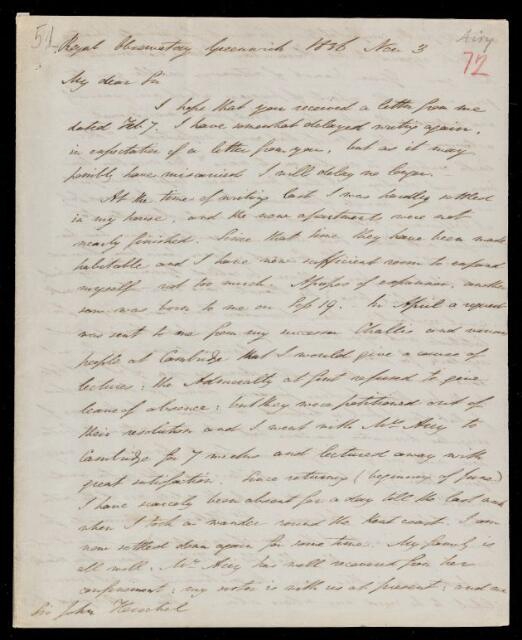 51
Airy
72
Royal Observatory Greenwich 1836 Nov 3
My dear Sir
I hope that you received a letter from me
dated Feb. 7. I have somewhat delayed writing again,
in expectation of a letter from you, but as it may
possibly have miscarried I will delay no longer.
At the time of writing last I was hardly settled
in my house, and the new apartments were not
nearly finished. Since that time they have been made
habitable and I have now sufficient room to expand
myself not too much. Apropos of expansion, another
son was born to me on Sep 19. In April a request
was sent to me from my successor Challis and various
people at Cambridge that I would give a course of
lectures: the Admiralty at first refused to give
leave of absence: but they were petitioned out of
their resolution and I went with Mrs Airy to
Cambridge for 7 weeks and lectured away with
great satisfaction. Since returning (beginning of June)
I have scarcely been absent for a day till the last week
when I took a wander round the Kent coast. I am
now settled down again for some time. My family is
all well. Mrs Airy has well recovered from her
confinement: my mother is with us at present: and
Sir John Herschel